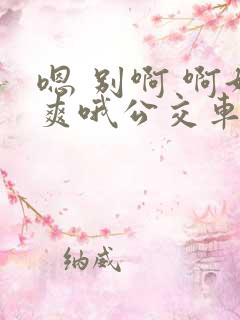 嗯 别啊 啊好
爽哦公交车
纳威